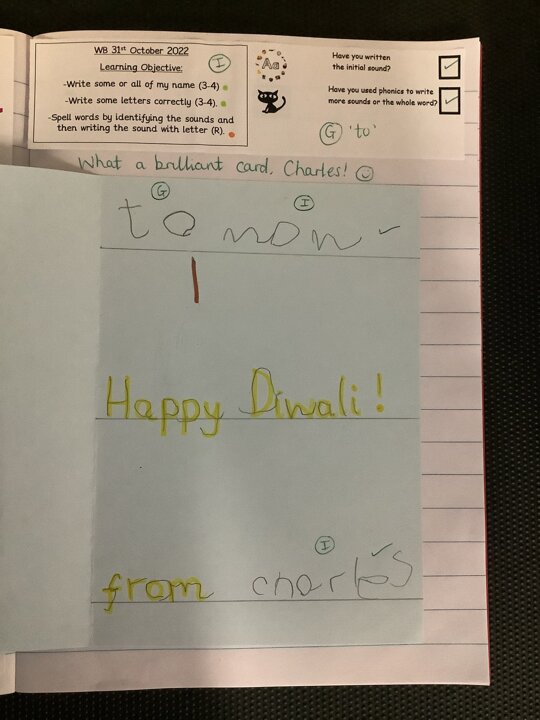 WB 31st October 2022
I
Learning Objective:
-Write some or all of my name (3-4)
-Write some letters correctly (3-4).
-Spell words by identifying the sounds and
then writing the sound with letter (R).
Aa
Have you written
the initial sound?
Have you used phonics to write
more sounds or the whole word?
G 'to'
What a brilliant card, Charles!
G
I
to mom
Happy Diwali!
I
from charles